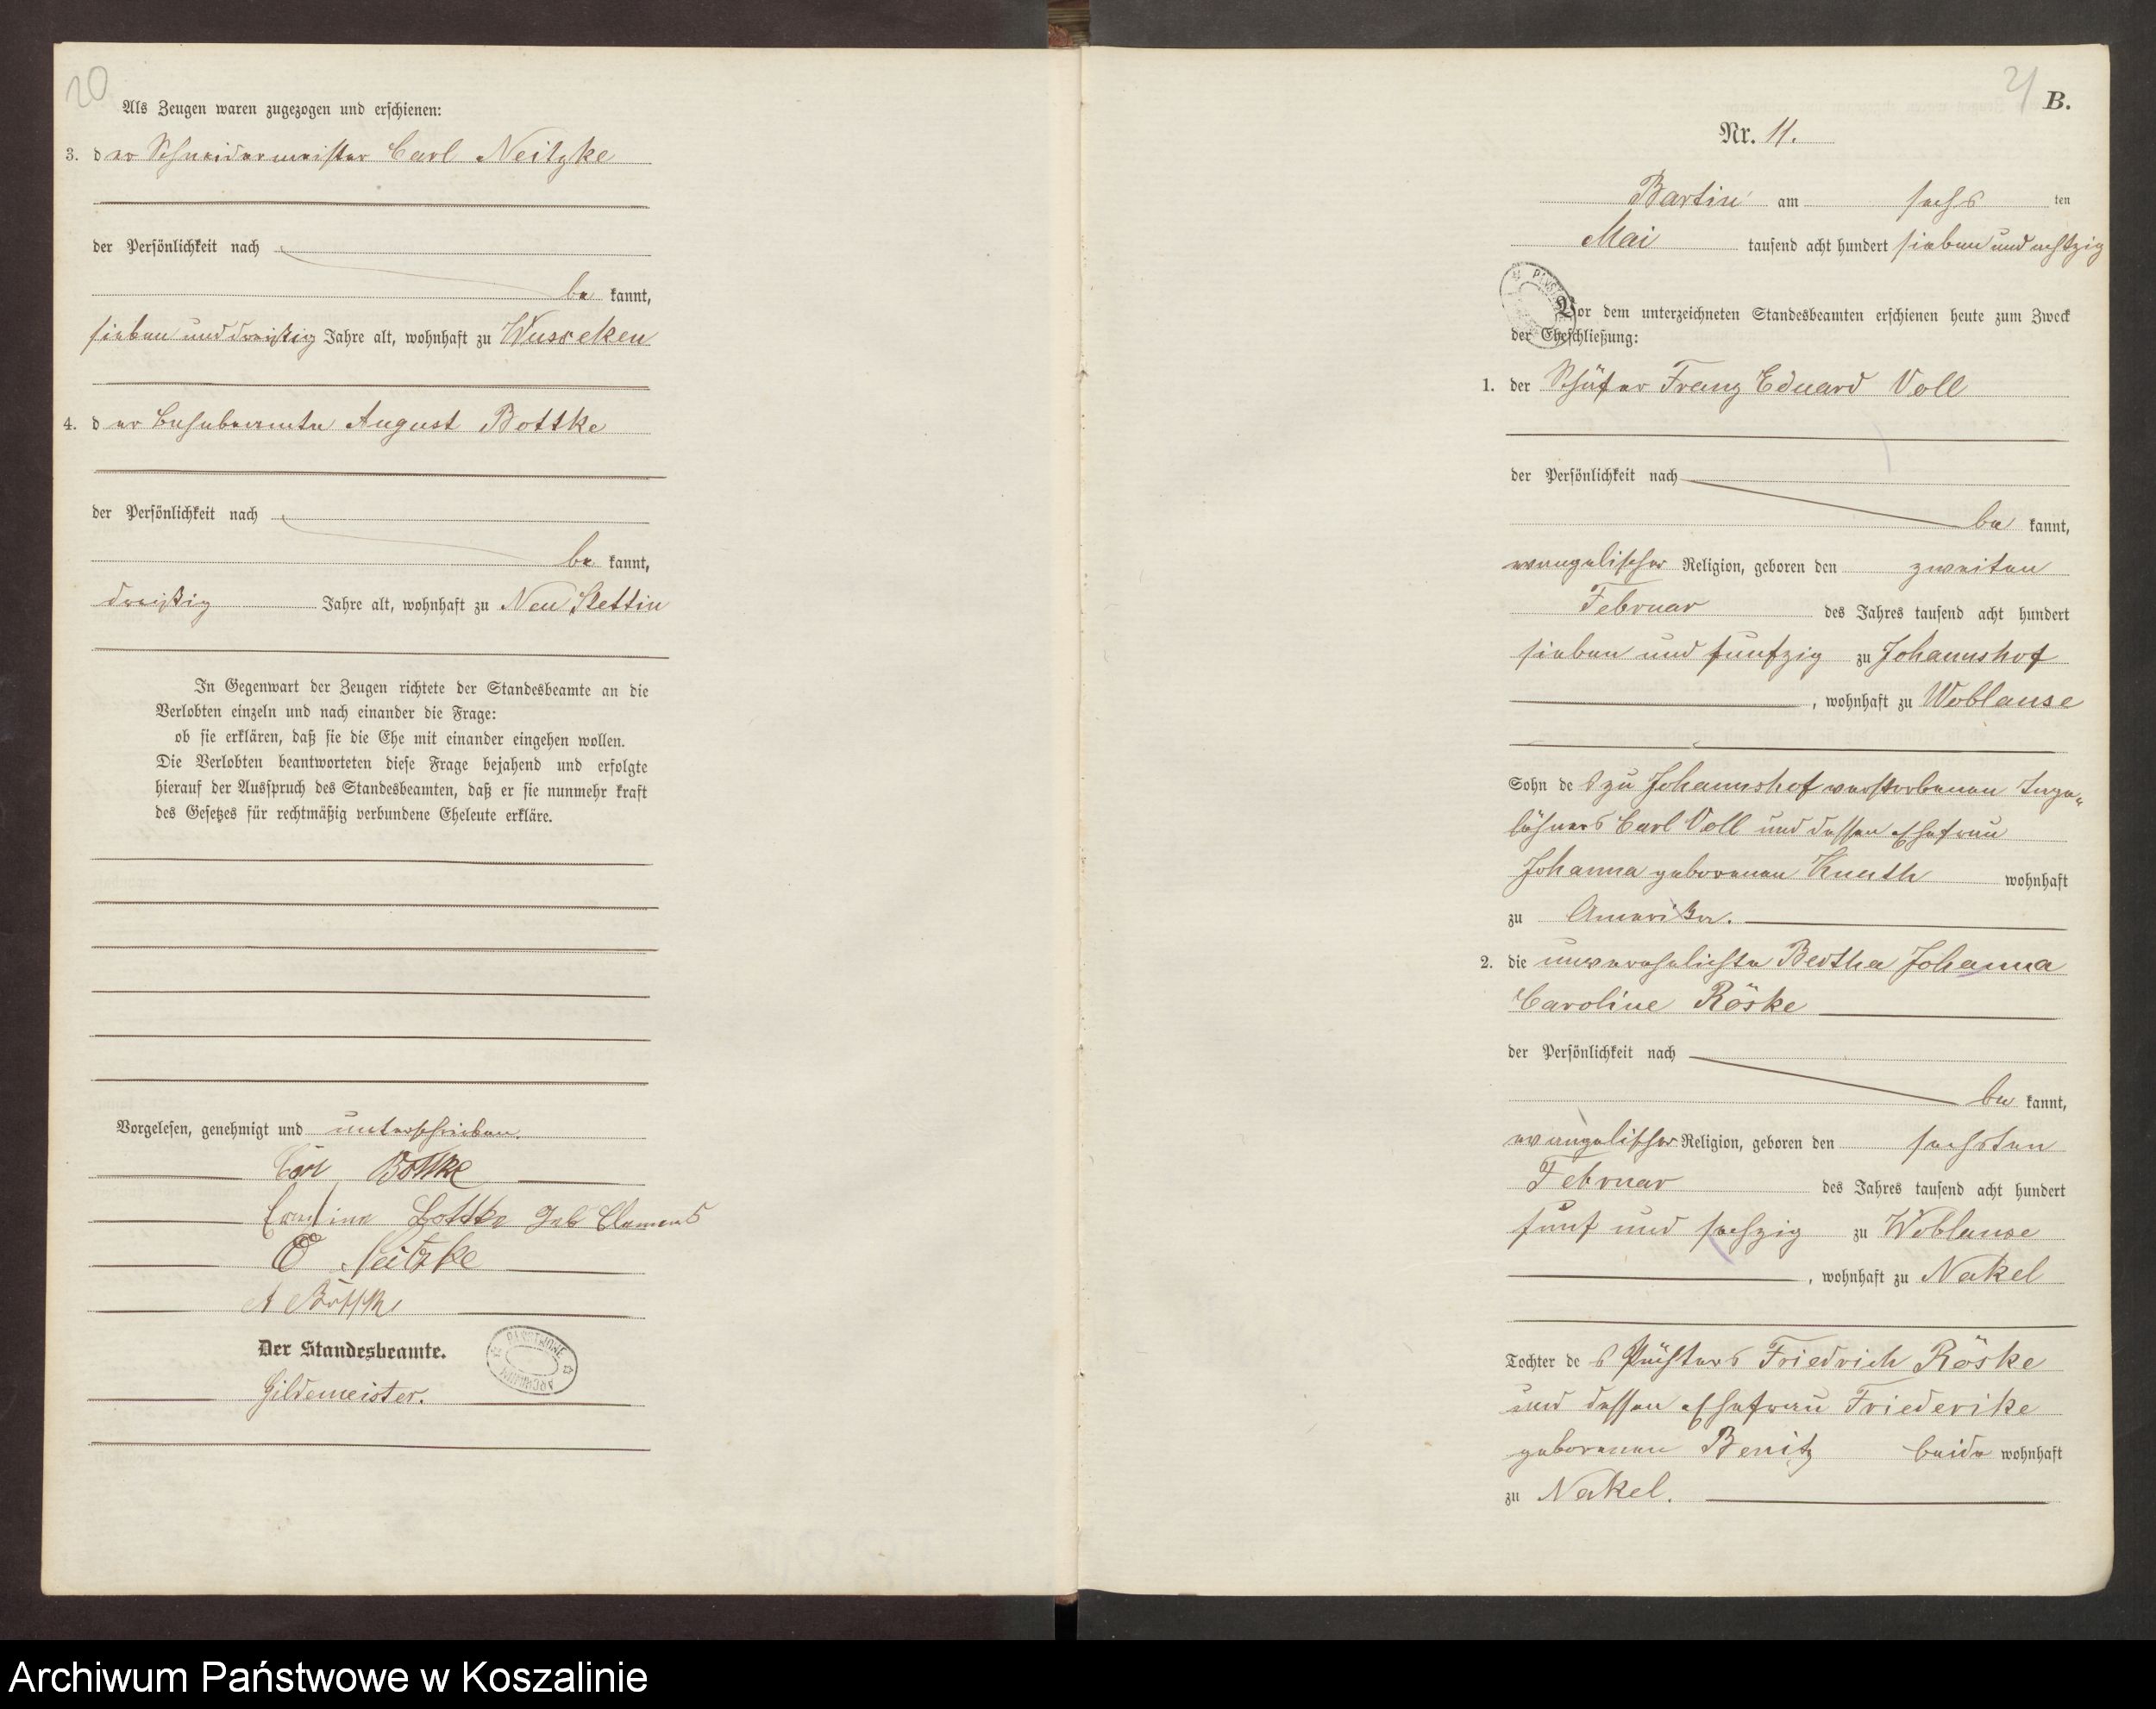 20
Als Zeugen waren zugezogen und erschienen:
3. der Schneidermeister Carl Neitzke
der Persönlichkeit nach
be kannt,
sieben und dreißig Jahre alt, wohnhaft zu Wusseken
4. der August Bottke
der Persönlichkeit nach
be kannt,
dreißig Jahre alt, wohnhaft zu Neu Stettin
In Gegenwart der Zeugen richtete der Standesbeamte an die
Verlobten einzeln und nach einander die Frage:
ob sie erklären, daß sie die Ehe mit einander eingehen wollen.
Die Verlobten beantworteten diese Frage bejahend und erfolgte
hierauf der Ausspruch des Standesbeamten, daß er sie nunmehr kraft
des Gesetzes für rechtmäßig verbundene Eheleute erkläre.
Vorgelesen, genehmigt und unterschrieben.
Carl Bottke
Ernstine Bottke Geb Clemens
C Neitzke
A Bottke
Der Standesbeamte.
Gildemeister.
PAŃSTWOWE ARCHIWUM
21
B.
Nr. 11.
Bartin am sechs ten
Mai tausend acht hundert sieben und achtzig
Vor dem unterzeichneten Standesbeamten erschienen heute zum Zweck
der Eheschließung:
1. der Schäfer Franz Eduard Voll
der Persönlichkeit nach
be kannt,
evangelischer Religion, geboren den zweiten
Februar des Jahres tausend acht hundert
sieben und fünfzig zu Johannshof
, wohnhaft zu Woblanse
Sohn des zu Johannshof verstorbenen Tage-
löhners Carl Voll und dessen Ehefrau
Johanna geborenen Knuth wohnhaft
zu Amerika.
2. die unverehelichte Bertha Johanna
Caroline Röske
der Persönlichkeit nach
be kannt,
evangelischer Religion, geboren den sechsten
Februar des Jahres tausend acht hundert
fünf und sechzig zu Woblanse
, wohnhaft zu Nakel
Tochter des Friedrich Röske
und dessen Ehefrau Friederike
geborenen Benitz beide wohnhaft
zu Nakel.
Archiwum Państwowe w Koszalinie